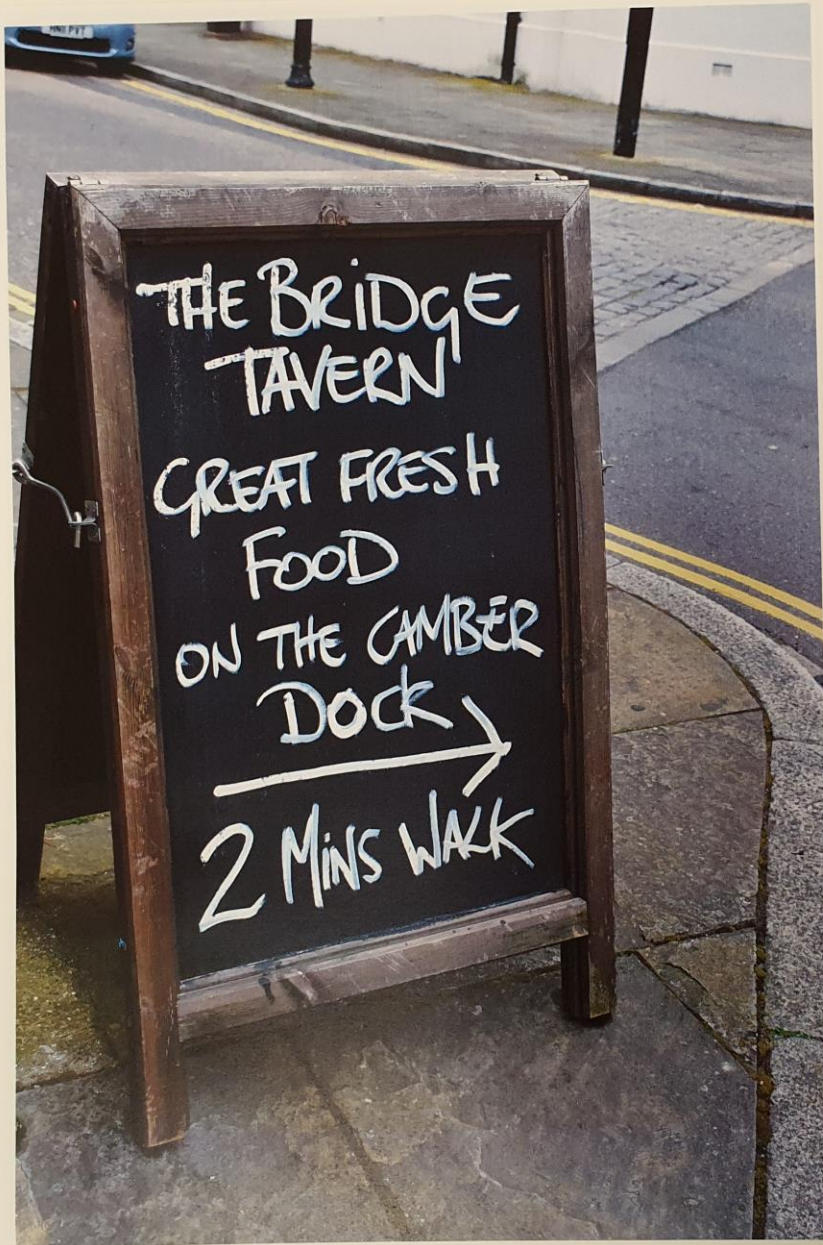 THE BRiDGE
TAVERN
GREAT FRESH
FOOD
ON THE CAMBER
DOCK
2 MiNS WALK